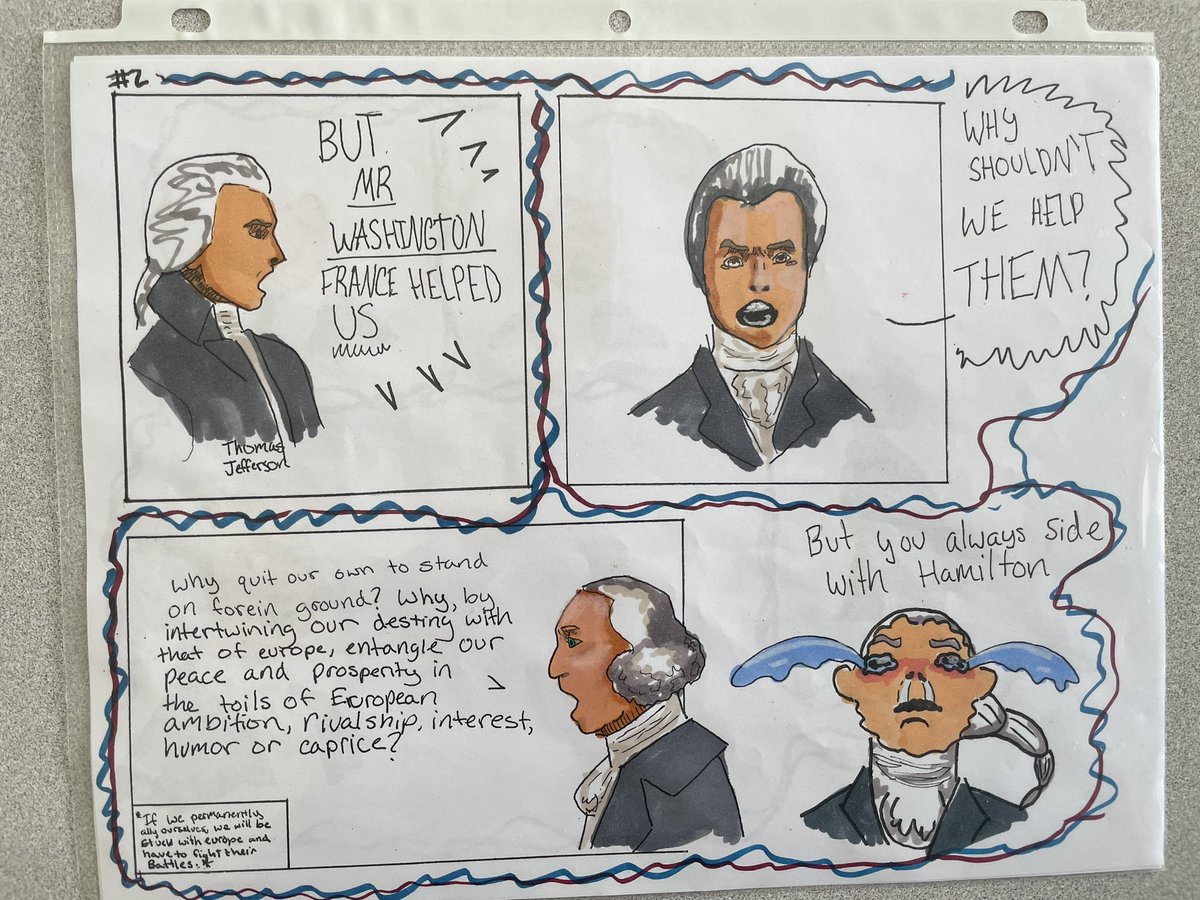 #2
BUT
MR
WASHINGTON
FRANCE HELPED
US
Thomas
Jefferson
WHY
SHOULDN'T
WE HELP
THEM?
Why quit our own to stand
on forein ground? Why, by
intertwining our desting with
that of europe, entangle our
peace and prosperity in
the toils of European
ambition, rivalship, interest,
humor or caprice?
*If we permanently
ally ourselves, we will be
stuck with europe and
have to fight their
Battles.*
But you always side
with Hamilton